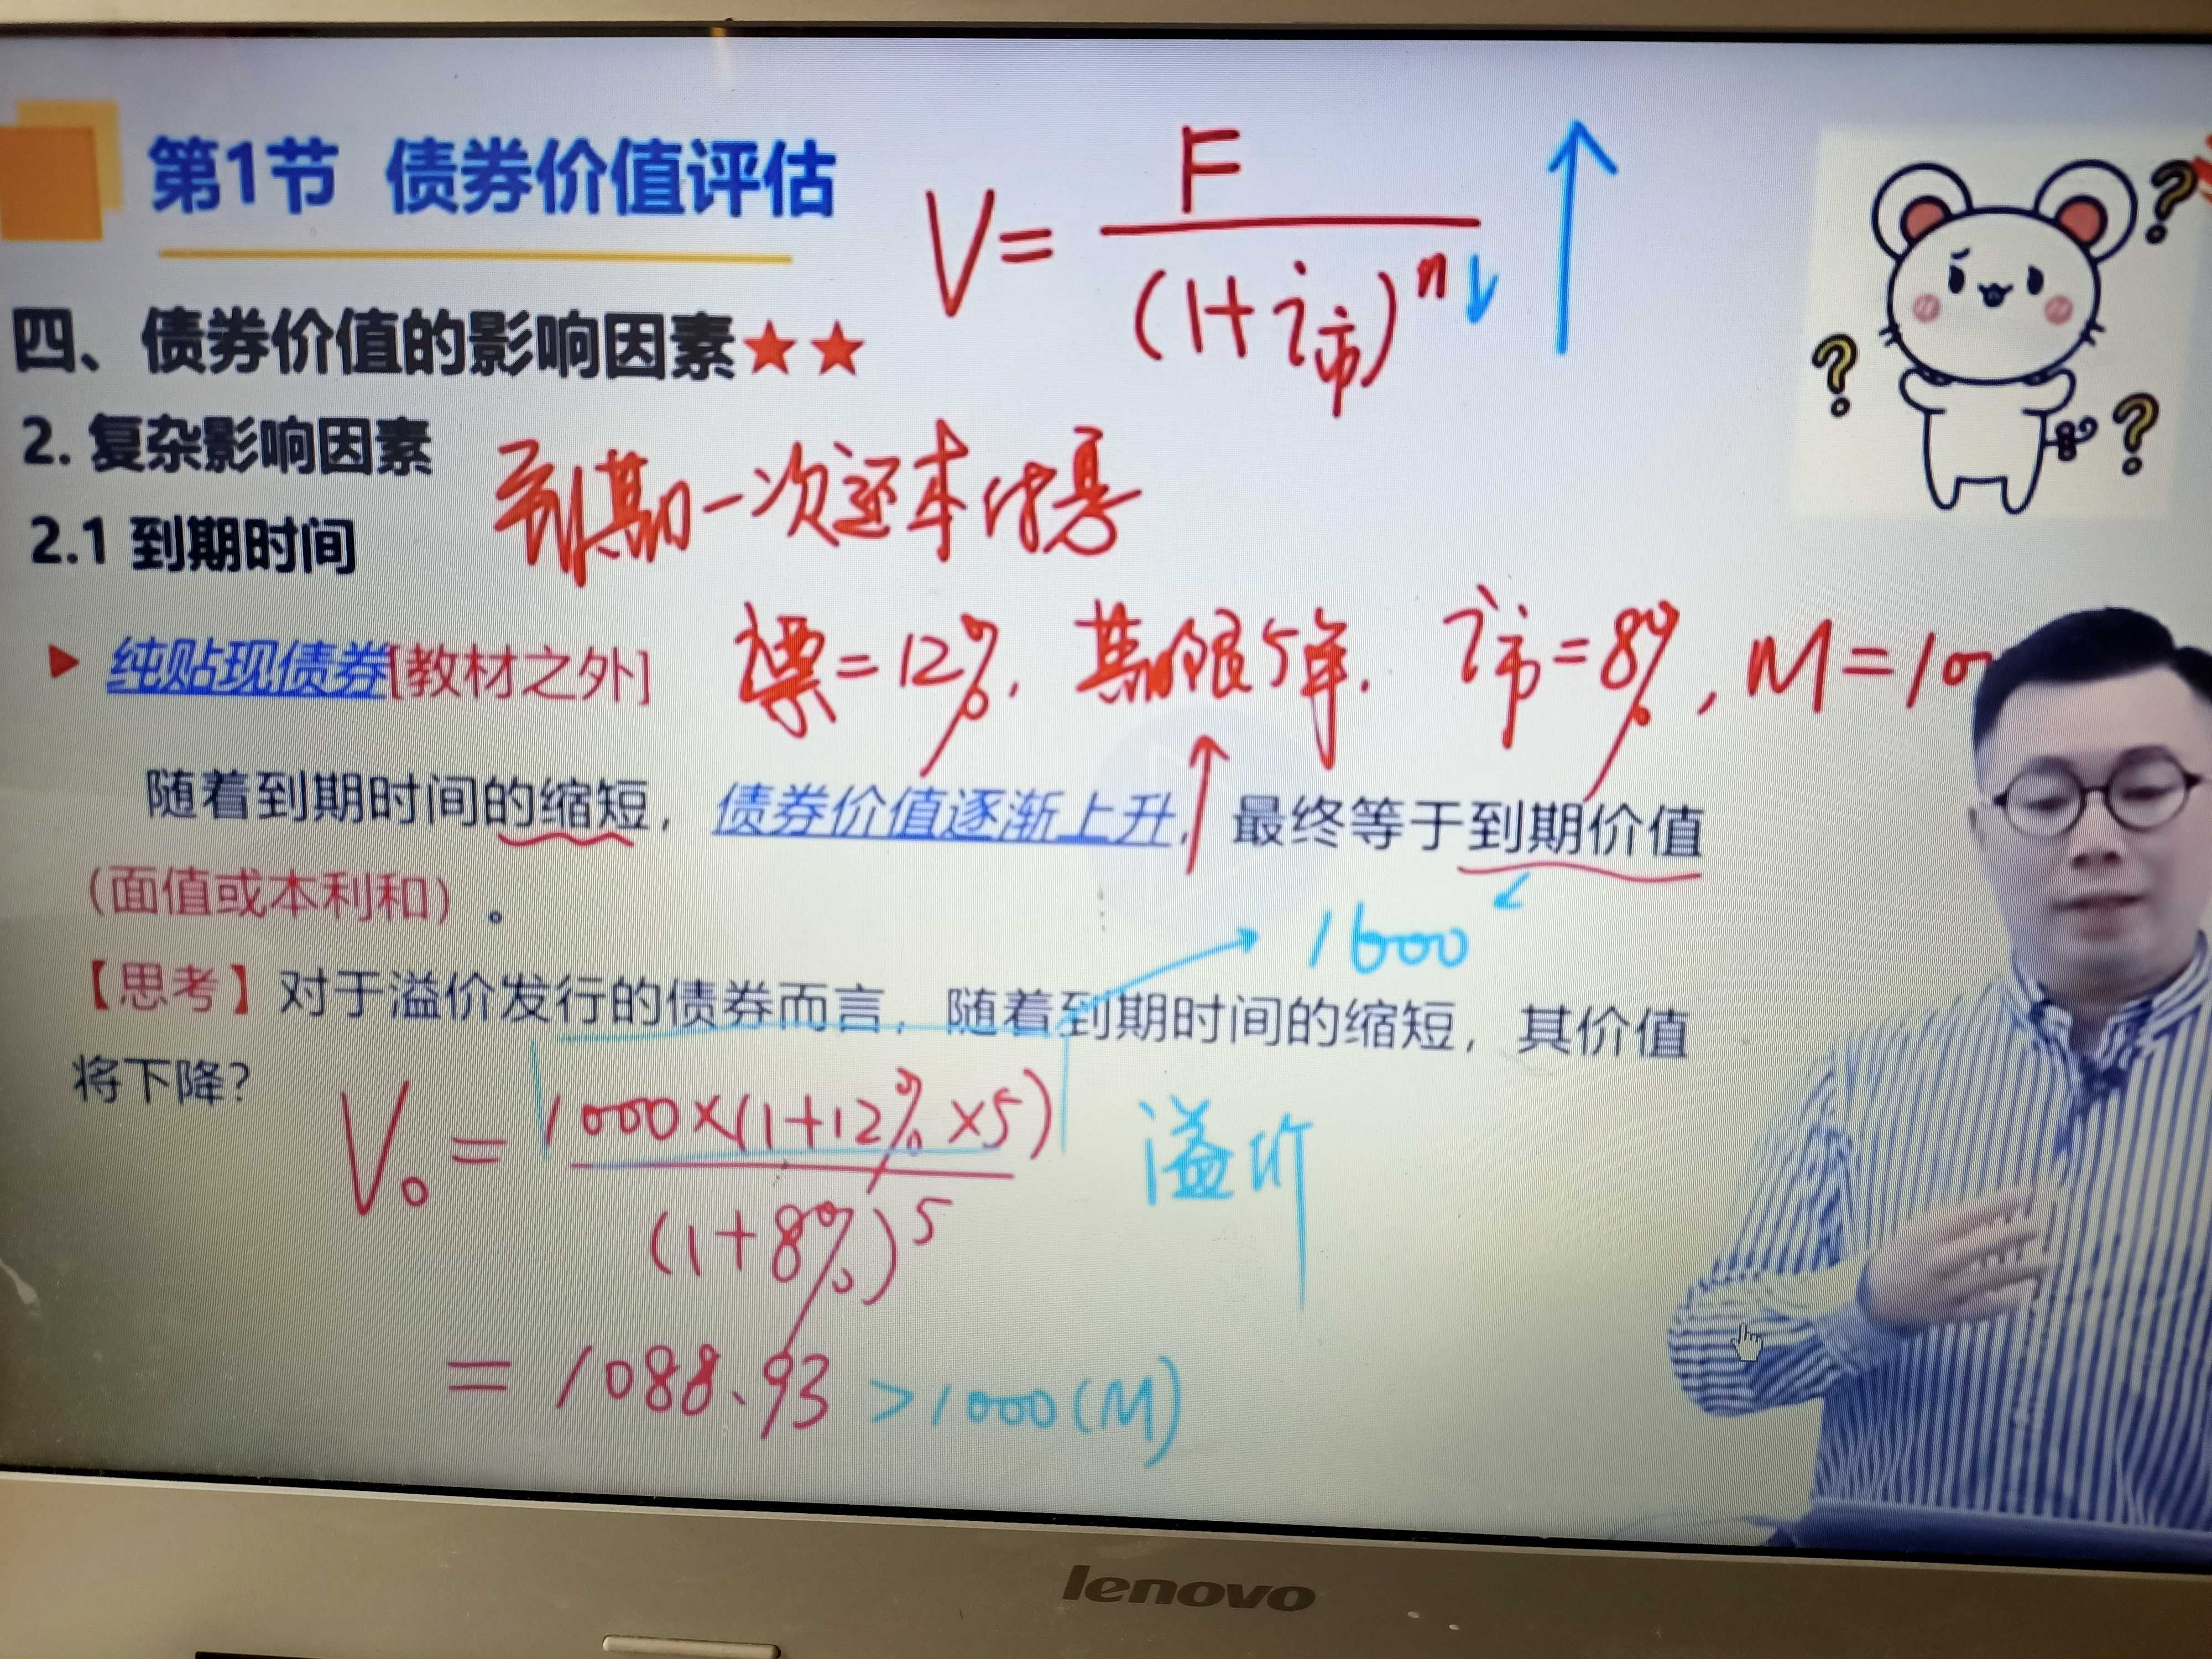 第1节 债券价值评估
V= F
(1+i市)ⁿ
四、债券价值的影响因素★★
2. 复杂影响因素
到期一次还本付息
2.1 到期时间
▶ 纯贴现债券[教材之外]
票=12%, 期限5年. i市=8%, M=100
随着到期时间的缩短，债券价值逐渐上升，最终等于到期价值
（面值或本利和）。
1600
【思考】对于溢价发行的债券而言，随着到期时间的缩短，其价值
将下降？
V₀ = 1000×(1+12%×5)
(1+8%)⁵
溢价
= 1088.93 >1000(M)
lenovo